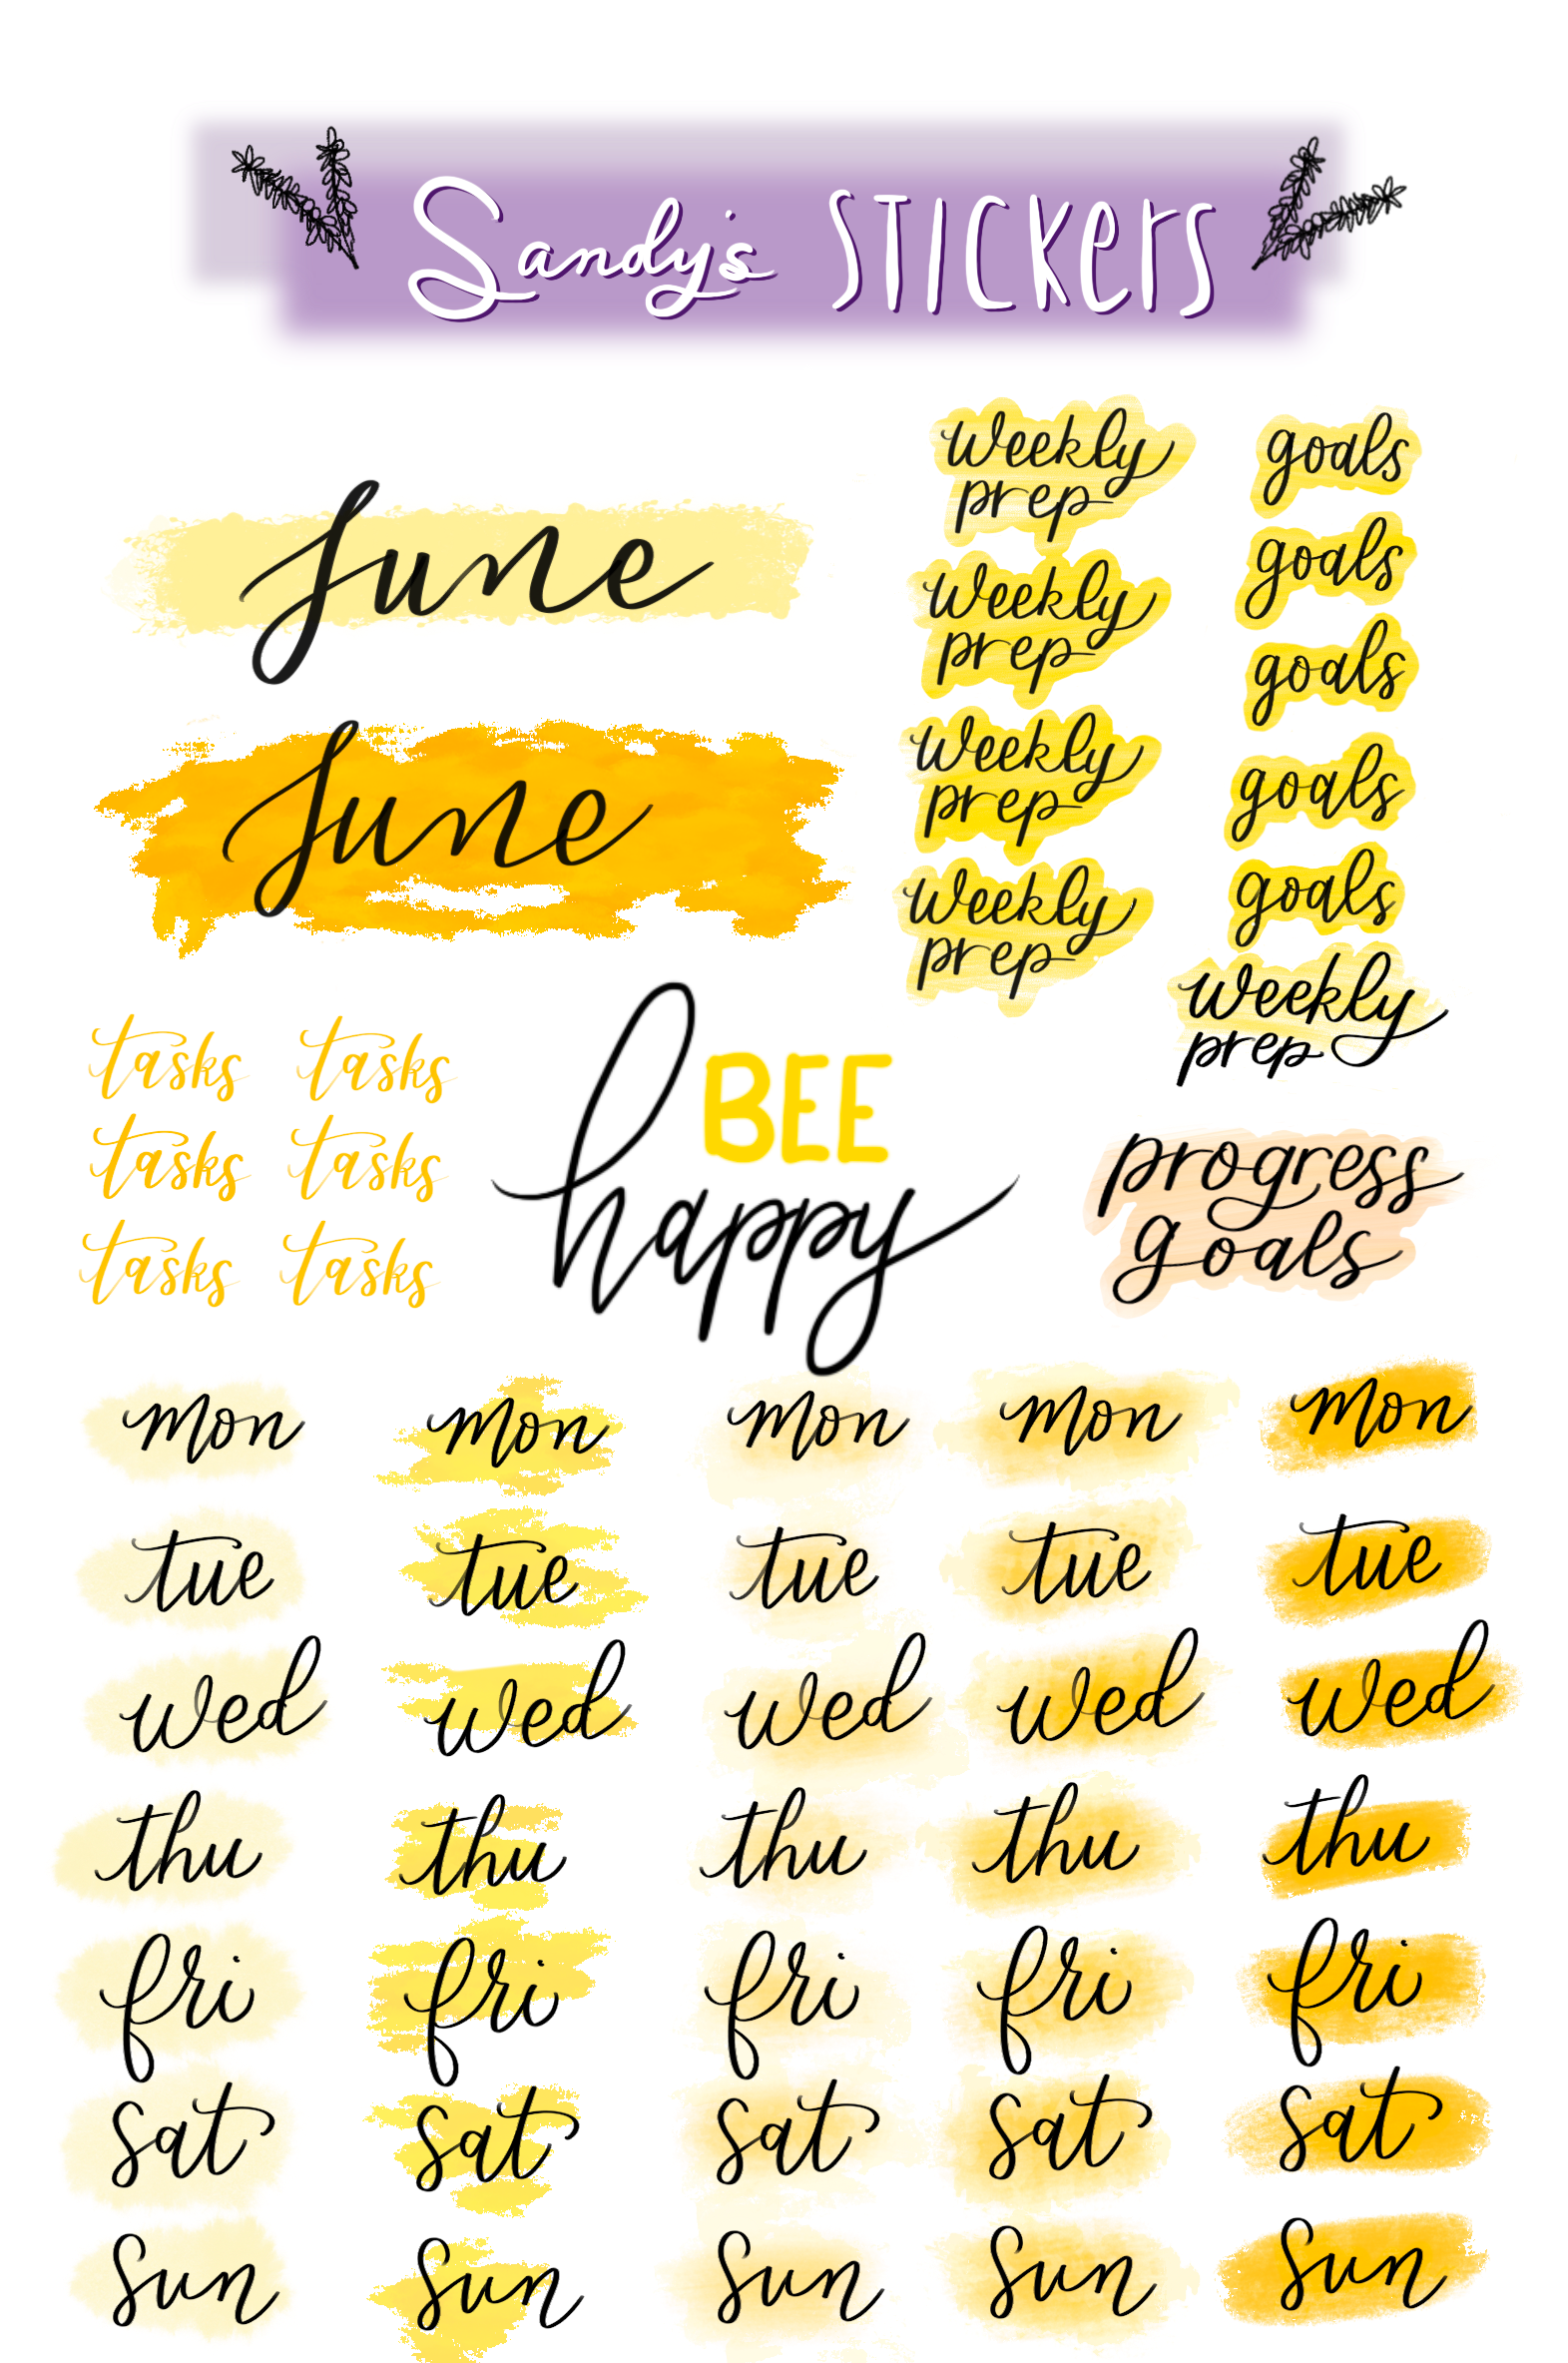 Sandy's STICKERS
June
June
Weekly
prep
Weekly
prep
Weekly
prep
Weekly
prep
goals
goals
goals
goals
goals
Weekly
prep
tasks tasks
tasks tasks
tasks tasks
BEE
happy
progress
goals
mon mon mon mon mon
tue tue tue tue tue
wed wed wed wed wed
thu thu thu thu thu
fri fri fri fri fri
sat sat sat sat sat
sun sun sun sun sun